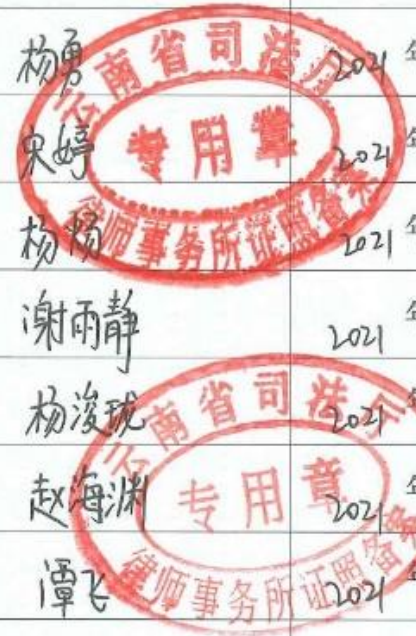 杨勇 2021 年
宋婷 2021 年
杨杨 2021 年
谢雨静 2021 年
杨浚珑 2021 年
赵海渊 2021 年
谭飞 2021 年
云南省司法厅
专用章
律师事务所证照备案
云南省司法厅
专用章
律师事务所证照备案